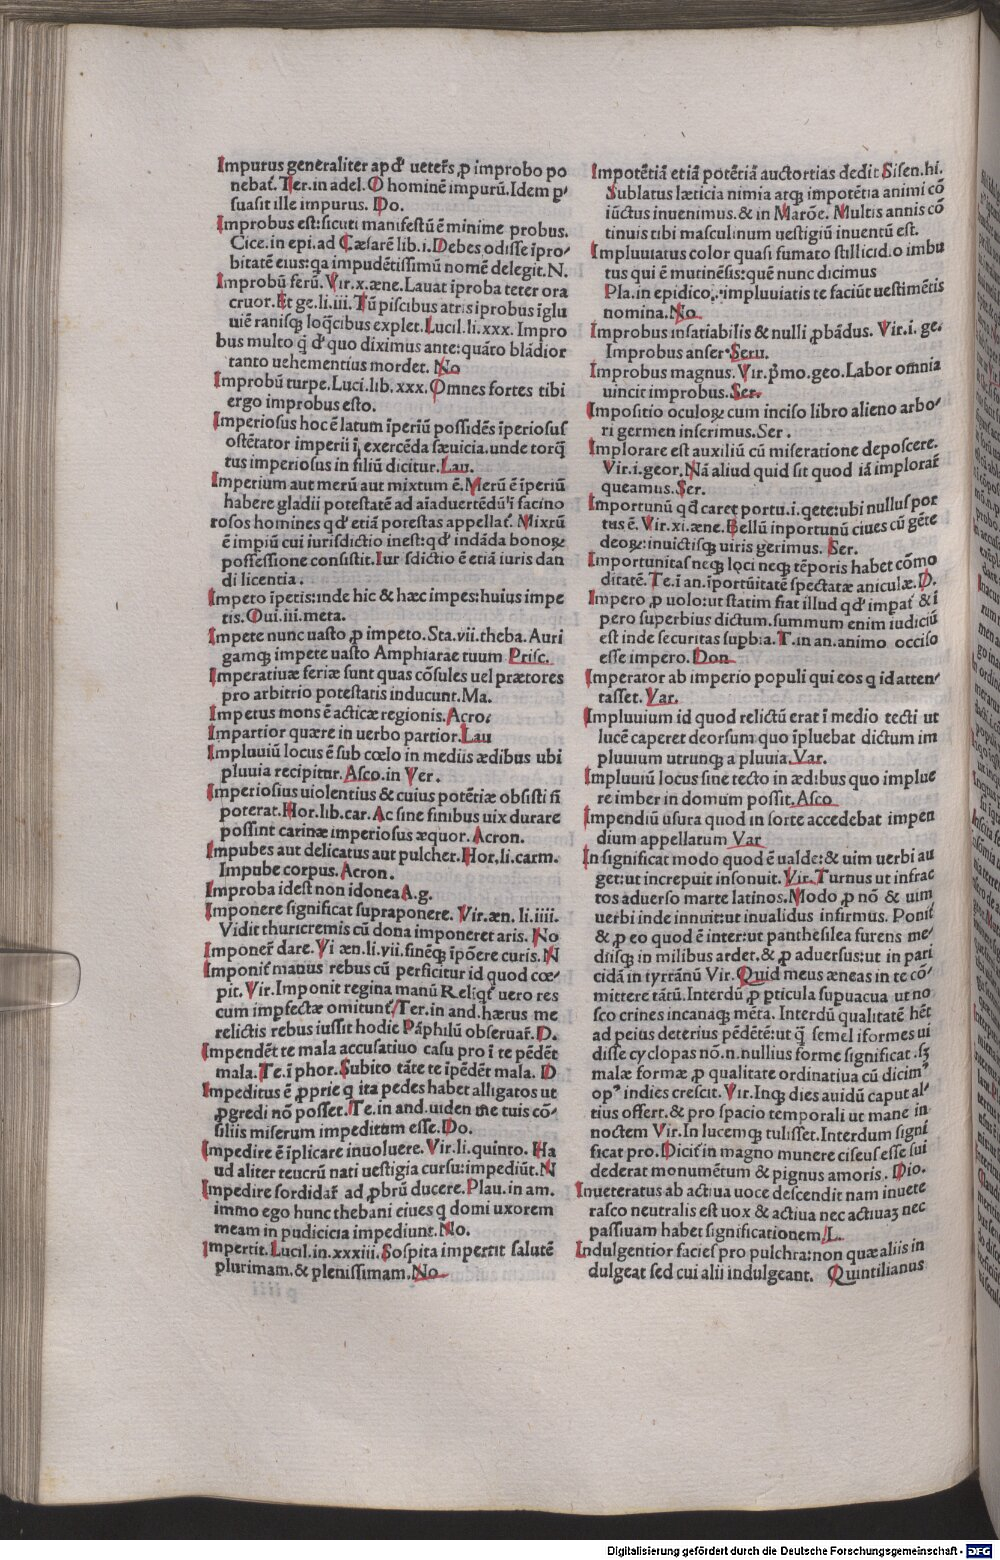 Impurus generaliter apd' ueter̃s ꝓ improbo po
nebat́. Ter.in adel.O hominē impurū.Idem p'
suasit ille impurus. Do.
Improbus est:sicuti manifestū ē minime probus.
Cice.in epi.ad Cæsarē lib.i.Debes odisse īpro/
bitatē eius:qa impudētissimū nomē delegit.N.
Improbū ferū.Vir.x.æne.Lauat īproba teter ora
cruor.Et ge.li.iii.Tū piscibus atris iprobus īglu
uiē ranisqꝫ loq̄cibus explet.Lucil.li.xxx.Impro
bus multo q̄ d' quo diximus ante:quāto blādior
tanto uehementius mordet. No
Improbū turpe.Luci.lib.xxx.Omnes fortes tibi
ergo improbus esto.
Imperiosus hoc ē latum īperiū possidēs īperiosus
ostētator imperii ī exercēda sæuicia.unde torq̄
tus imperiosus in filiū dicitur.Lau.
Imperium aut merū aut mixtum ē.Merū ē īperiū
habere gladii potestatē ad aīaduertēdū'i facino
rosos homines qd' etiā potestas appellat́. Mixtū
ē impiū cui iurisdictio inest:qd' indāda bonoꝝ
possessione consistit.Iur sdictio ē etiā iuris dan
di licentia.
Impeto īpetis:inde hic & hæc impes:huius impe
tis.Oui.iii.meta.
Impete nunc uasto ꝓ impeto.Sta.vii.theba.Auri
gamqꝫ impete uasto Amphiarae tuum Prisc.
Imperatiuæ feriæ sunt quas cōsules uel prætores
pro arbitrio potestatis inducunt.Ma.
Impetus mons ē acticæ regionis.Acro.
Impartior quære in uerbo partior.Lau
Impluuiū locus ē sub cœlo in mediis ædibus ubi
pluuia recipitur.Asco.in Ver.
Imperiosius uiolentius & cuius potētiæ obsisti ñ
poterat.Hor.lib.car.Ac sine finibus uix durare
possint carinæ imperiosius æquor.Acron.
Impubes aut delicatus aut pulcher.Hor.li.carm.
Impube corpus.Acron.
Improba idest non idonea A.g.
Imponere significat supraponere. Vir.æn. li.iiii.
Vidit thuricremis cū dona imponeret aris. No
Imponer̃ dare.Vi æn.li.vii.finēqꝫ īpōere curis.N
Imponit́ manus rebus cū perficitur id quod cœ/
pit.Vir.Imponit regina manū Reliq̃ uero res
cum impfectæ omitunt́.Ter.in and.hærus me
relictis rebus iussit hodie Pāphilū obseruar̃.D.
Impendēt te mala accusatiuo casu pro ī te pēdēt
mala.Te.ī phor.Subito tāte te īpēdēt mala. D
Impeditus ē ꝓprie q ita pedes habet alligatos ut
ꝓgredi nō posset.Te.in and.uiden me tuis cō/
siliis miserum impeditum esse.Do.
Impedire ē īplicare inuoluere.Vir.li.quinto. Ha
ud aliter teucrū nati uestigia cursu:impediūt.N
Impedire sordidar̃ ad ꝓbrū ducere.Plau.in am.
immo ego hunc thebani ciues q domi uxorem
meam in pudicicia impediunt.No.
Impertit.Lucil.in.xxxiii.Sospita impertit salutē
plurimam.& plenissimam.No
Impotētiā etiā potētiā auctortias dedit Sisen.hi.
Sublatus læticia nimia atqꝫ impotētia animi cō
iūctus inuenimus.& in Marōe. Multis annis cō
tinuis tibi masculinum uestigiū inuentū est.
Impluuiatus color quasi fumato stillicid.o imbu
tus qui ē mutinēsis:quē nunc dicimus
Pla.in epidico.impluuiatis te faciūt uestimētis
nomina.No.
Improbus insatiabilis & nulli ꝓbādus. Vir.i. ge.
Improbus anser.Seru.
Improbus magnus. Vir.p̄mo.geo.Labor omnia
uincit improbus.Ser.
Impositio oculoꝝ cum inciso libro alieno arbo/
ri germen inserimus.Ser.
Implorare est auxiliū cū miseratione deposcere.
Vir.i.geor.Nā aliud quid sit quod iā implorar̃
queamus.Ser.
Importunū qd caret portu.i.qete:ubi nullus por
tus ē. Vir.xi.æne.Bellū inportunū ciues cū gēte
deoꝝ:inuictisqꝫ uiris gerimus. Ser.
Importunitas neqꝫ loci neqꝫ tēporis habet cōmo
ditatē.Te.ī an.īportūitatē spectatæ aniculæ.D.
Impero ꝓ uolo:ut statim fiat illud qd' impat́ & ī
pero superbius dictum.summum enim iudiciū
est inde securitas supbia.T.in an.animo occiso
esse impero.Don
Imperator ab imperio populi qui eos q id atten/
tasset.Var.
Impluuium id quod relictū erat ī medio tecti ut
lucē caperet deorsum quo īpluebat dictum im
pluuium utrunqꝫ a pluuia.Var.
Impluuiū locus sine tecto in ædibus quo implue
re imber in domum possit.Asco
Impendiū usura quod in sorte accedebat impen
dium appellatum Var
In significat modo quod ē ualde:& uim uerbi au
get:ut increpuit insonuit. Vir.Turnus ut infrac
tos aduerso marte latinos.Modo ꝓ nō & uim
uerbi inde innuit:ut inualidus infirmus. Ponit́
& ꝓ eo quod ē inter:ut panthesilea furens me/
diisqꝫ in milibus ardet.& ꝓ aduersus:ut in pari
cidā in tyrānū Vir.Quid meus æneas in te cō/
mittere tātū.Interdū ꝓ pticula supuacua ut no
sco crines incanaqꝫ mēta. Interdū qualitatē hēt
ad peius deterius pēdētē:ut q̄ semel iformes ui
disse cyclopas nō.n.nullius forme significat.sꝫ
malæ formæ ꝓ qualitate ordinatiua cū dicim'
op' indies crescit. Vir.Inqꝫ dies auidū caput al/
tius offert.& pro spacio temporali ut mane in
noctem Vir.In lucemqꝫ tulisset.Interdum signi
ficat pro.Dicit́ in magno munere ciseus esse sui
dederat monumētum & pignus amoris. Dio.
Inueteratus ab actiua uoce descendit nam inuete
rasco neutralis est uox & actiua nec actiuaꝫ nec
passiuam habet significationem.L.
Indulgentior facies pro pulchra:non quæ aliis in
dulgeat sed cui alii indulgeant. Quintilianus
Digitalisierung gefördert durch die Deutsche Forschungsgemeinschaft - DFG